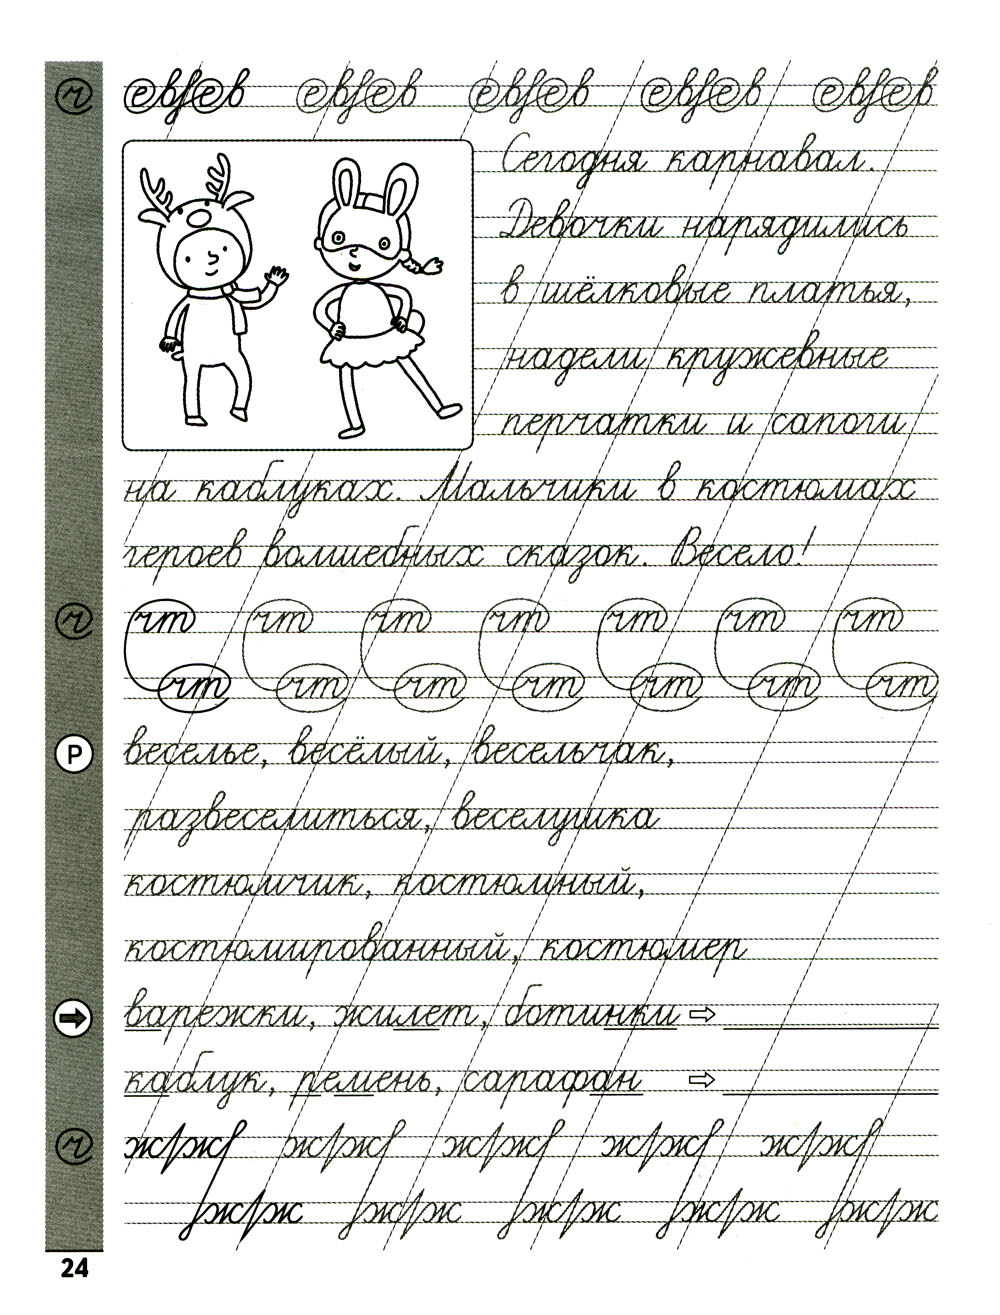 ч евсев евсев евсев евсев евсев
Сегодня карнавал.
Девочки нарядились
в шёлковые платья,
надели кружевные
перчатки и сапоги
на каблуках. Мальчики в костюмах
героев волшебных сказок. Весело!
ч чт чт чт чт чт чт чт
чт чт чт чт чт чт чт
Р веселье, весёлый, весельчак,
развеселиться, веселушка
костюмчик, костюмный,
костюмированный, костюмер
варежки, жилет, ботинки ⇨
каблук, ремень, сарафан ⇨
ч
24